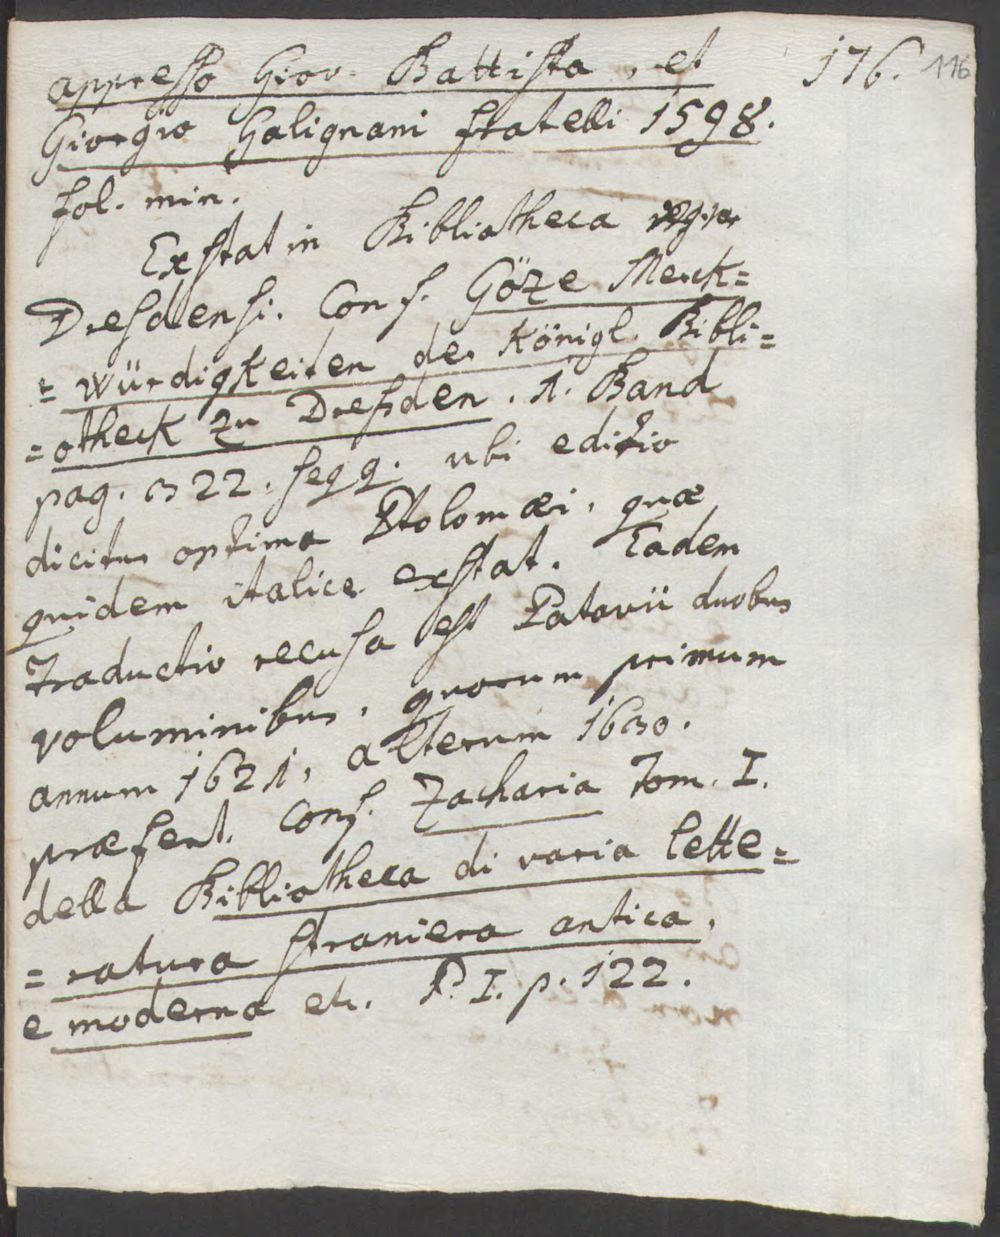 appresso Giov. Battista, et 176. 116
Giorgio Galignani fratelli 1598.
fol. min.
Exstat in Bibliotheca regiae
Dresdensi. Conf. Göze Merk=
=würdigkeiten der Königl. Bibli=
=otheck zu Dresden. 1. Band
pag. 322. seqq. ubi editio
dicitur optima Ptolomæi, quæ
quidem italice exstat. Eadem
traductio recusa est Patavii duobus
voluminibus, quorum primum
annum 1621, alterum 1630.
præfert. Conf. Zacharia Tom. I.
della Bibliotheca di varia lette=
=ratura straniera antica,
e moderna etc. P. I. p. 122.